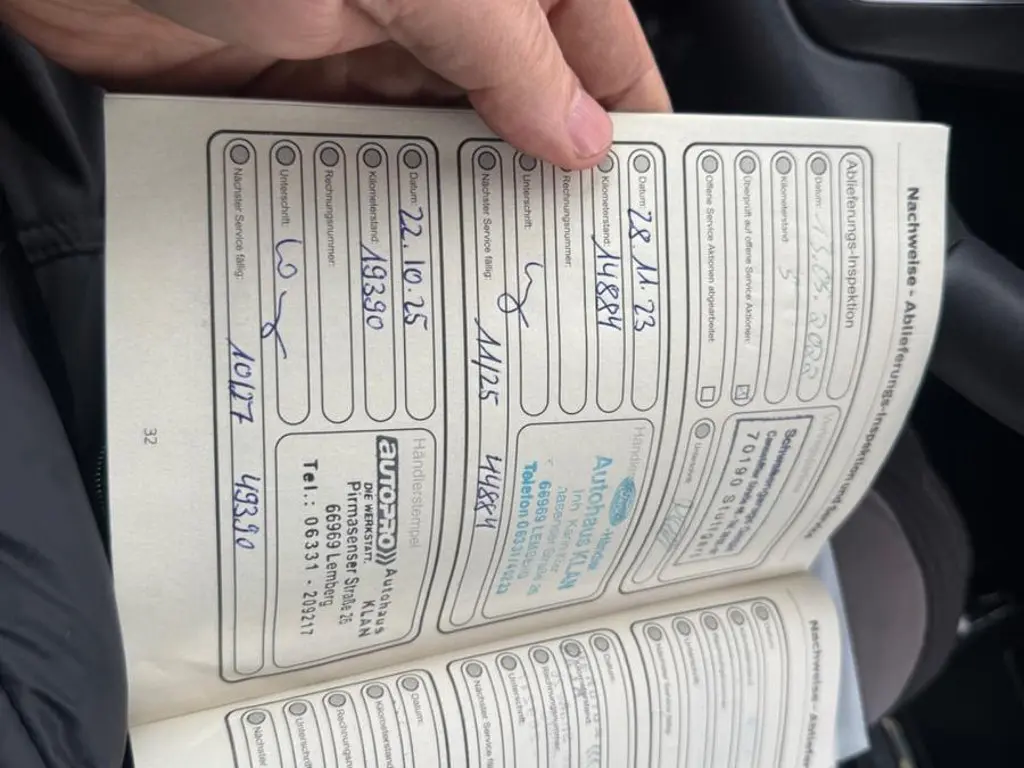 Nachweise - Ablieferungs-Inspektion und Service
Ablieferungs-Inspektion
Datum: 13.05.2022
Kilometerstand: 5
Überprüft auf offene Service Aktionen:
Offene Service Aktionen abgearbeitet:
Unterschrift:
70190 Stuttgart
Datum: 28.11.23
Kilometerstand: 14884
Rechnungsnummer:
Unterschrift:
Nächster Service fällig: 11/25 44884
Autohaus KLAN
66969 LEMBERG
Telefon 06331/49232
Datum: 22.10.25
Kilometerstand: 19390
Rechnungsnummer:
Unterschrift:
Nächster Service fällig: 10/27 49390
Händlerstempel
AUTOPRO))) Autohaus
DIE WERKSTATT. KLAN
Pirmasenser Straße 26
66969 Lemberg
Tel.: 06331 - 209217
32
Nachweise - Ablieferu
Datum:
Rechnungsnummer:
Unterschrift:
Nächster Service fä
Datum:
Rechnungsn
Unterschrift:
Nächster